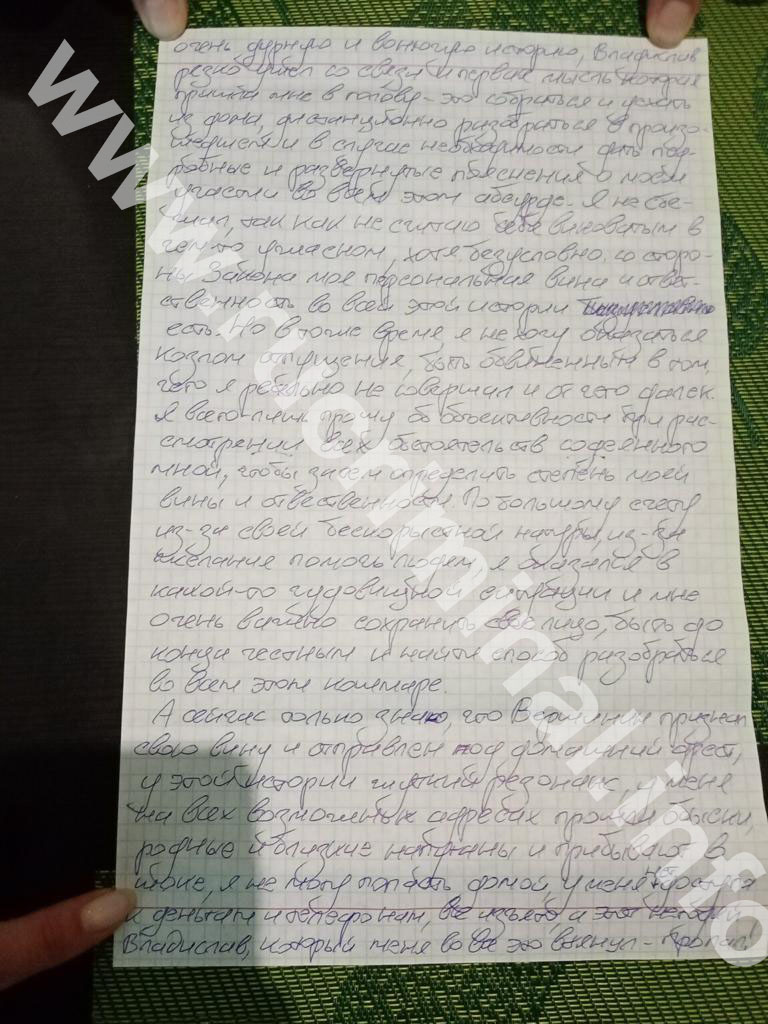 очень дурную и вонючую историю, Владислав
резко ушел со связи и первая мысль которая
пришла мне в голову - это собраться и уехать
из дома, дистанционно разобраться в произо-
шедшем и в случае необходимости дать под-
робные и развернутые пояснения о моем
участии во всем этом абсурде. Я не сбе-
жал, так как не считаю себя виноватым в
чем-то ужасном, хотя безусловно, со сторо-
ны Закона моя персональная вина и ответ-
ственность во всей этой истории
есть. Но в тоже время, я не хочу оказаться
козлом отпущения, быть обвиненным в том,
чего я реально не совершал и от чего далек.
Я всего лишь прошу об объективности при рас-
смотрении всех обстоятельств содеянного
мной, чтобы затем определить степень моей
вины и ответственности. По большому счету
из-за своей бескорыстной натуры, из-за
желания помочь людям я оказался в
какой-то чудовищной ситуации и мне
очень важно сохранить свое лицо, быть до
конца честным и найти способ разобраться
во всем этом кошмаре.
А сейчас только знаю, что Вершинин признал
свою вину и отправлен под домашний арест,
у этой истории жуткий резонанс, у меня
на всех возможных адресах прошли обыски,
родные и близкие напуганы и прибывают в
шоке, я не могу попасть домой, у меня нет доступа
к деньгам и телефонам, все изъято, а этот
Владислав, который меня во все это втянул - пропал!
www.rucriminal.info